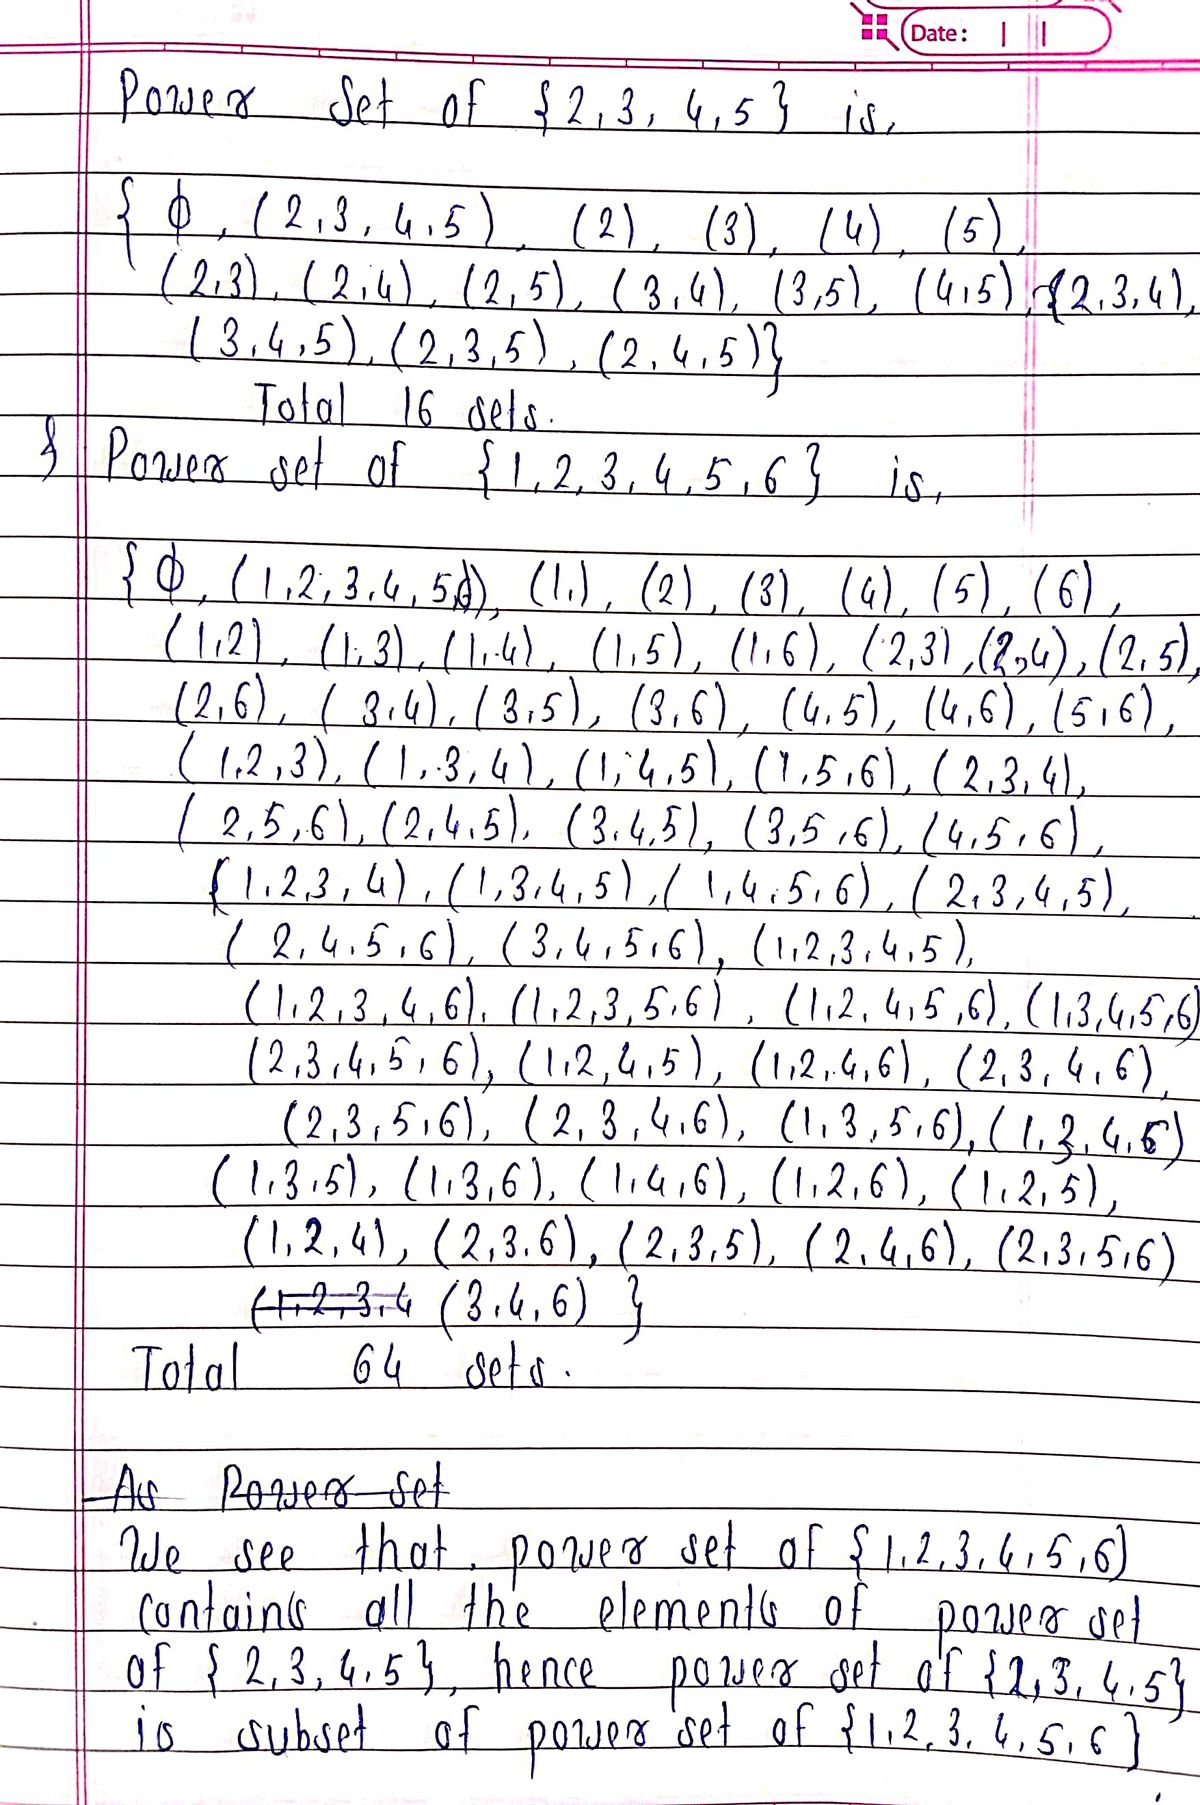 Date: | |
Power Set of {2,3,4,5} is,
{ Φ, (2,3,4,5), (2), (3), (4), (5),
(2,3), (2,4), (2,5), (3,4), (3,5), (4,5), {2,3,4),
(3,4,5), (2,3,5), (2,4,5)}
Total 16 sets.
} Power set of {1,2,3,4,5,6} is,
{Φ, (1,2,3,4,5,6), (1,), (2), (3), (4), (5), (6),
(1,2), (1,3), (1,4), (1,5), (1,6), (2,3), (2,4), (2,5),
(2,6), (3,4), (3,5), (3,6), (4,5), (4,6), (5,6),
(1,2,3), (1,3,4), (1,4,5), (1,5,6), (2,3,4),
(2,5,6), (2,4,5), (3,4,5), (3,5,6), (4,5,6),
(1,2,3,4), (1,3,4,5), (1,4,5,6), (2,3,4,5),
(2,4,5,6), (3,4,5,6), (1,2,3,4,5),
(1,2,3,4,6), (1,2,3,5,6), (1,2,4,5,6), (1,3,4,5,6)
(2,3,4,5,6), (1,2,4,5), (1,2,4,6), (2,3,4,6),
(2,3,5,6), (2,3,4,6), (1,3,5,6), (1,3,4,6)
(1,3,5), (1,3,6), (1,4,6), (1,2,6), (1,2,5),
(1,2,4), (2,3,6), (2,3,5), (2,4,6), (2,3,5,6)
(1,2,3,4 (3,4,6) }
Total 64 sets.
As Power set
We see that, power set of {1,2,3,4,5,6)
contains all the elements of power set
of {2,3,4,5}, hence power set of {2,3,4,5}
is subset of power set of {1,2,3,4,5,6}